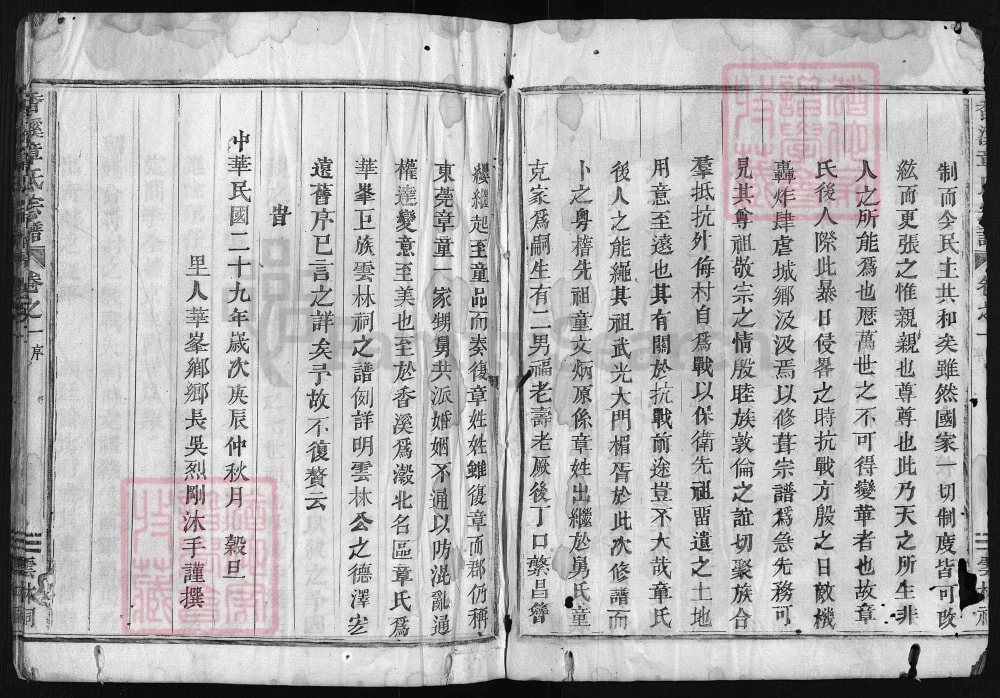 制而今民主共和矣雖然國家一切制度皆可改
絃而更張之惟親親也尊尊也此乃天之所生非
人之所能爲也歴萬世之不可得變革者也故章
氏後人際此暴日侵畧之時抗戰方殷之日敵機
轟炸肆虐城鄉汲汲焉以修葺宗譜爲急先務可
見其尊祖敬宗之情殷睦族敦倫之誼切聚族合
羣抵抗外侮村自爲戰以保衛先祖畱遺之土地
用意至遠也其有關於抗戰前途豈不大哉章氏
後人之能繩其祖武光大門楣胥於此次修譜而
卜之粤稽先祖童文炳原係章姓出繼於舅氏童
克家爲嗣生有二男福老壽老厥後丁口繁昌簪
纓繼起至童品而奏復章姓姓雖復章而郡仍稱
東莞章童一家甥舅共派婚姻不通以防混亂通
權達變意至美也至於香溪爲瀫北名區章氏爲
華峯巨族雲林祠之譜例詳明雲林公之德澤宏
遠舊序已言之詳矣予故不復贅云
旹
中華民國二十九年歲次庚辰仲秋月 穀旦
里人華峯鄉鄉長吳烈剛沐手謹撰
香溪章氏宗譜 卷之一 序
雲林祠